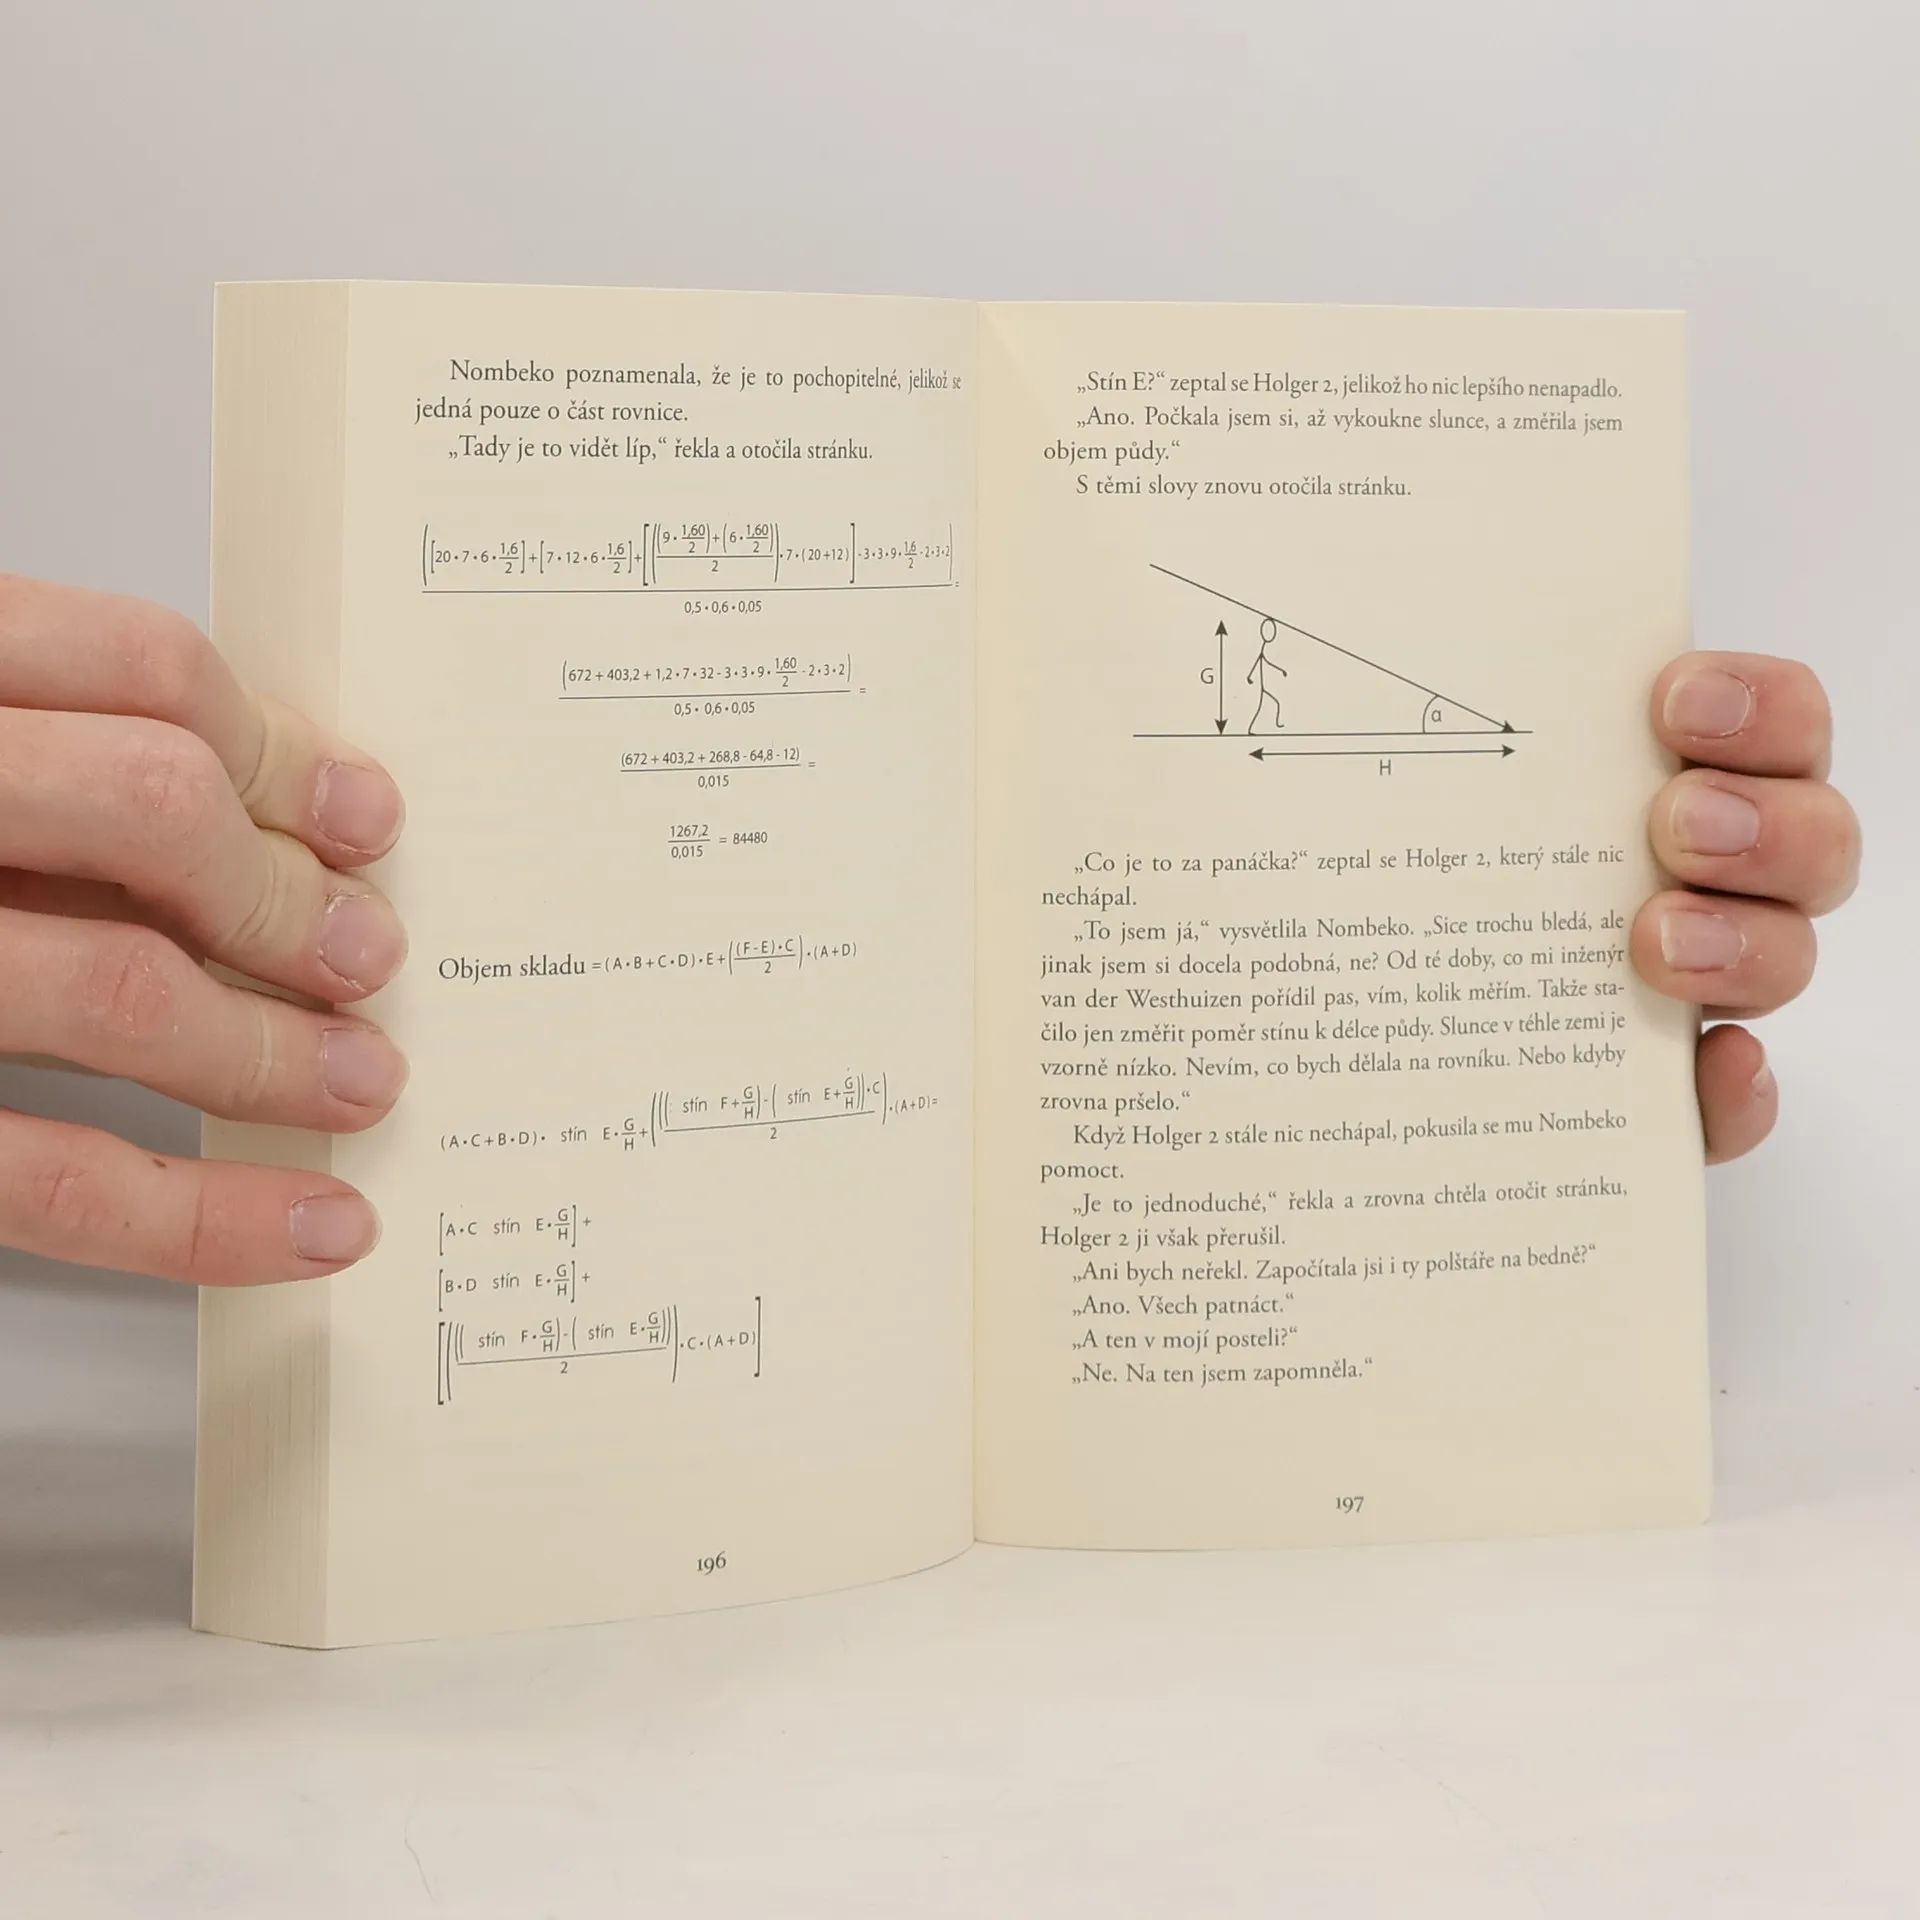 Nombeko poznamenala, že je to pochopitelné, jelikož se
jedná pouze o část rovnice.
„Tady je to vidět líp,“ řekla a otočila stránku.
([20•7•6•1,6/2]+[7•12•6•1,6/2]+[(((9•1,60/2)+(6•1,60/2))/2)•7•(20+12)]-3•3•9•1,6/2-2•3•2)/(0,5•0,6•0,05) =
(672+403,2+1,2•7•32-3•3•9•1,60/2-2•3•2)/(0,5•0,6•0,05) =
(672+403,2+268,8-64,8-12)/0,015 =
1267,2/0,015 = 84480
Objem skladu =(A•B+C•D)•E+(((F-E)•C)/2)•(A+D)
(A•C+B•D)• stín E•G/H+((((stín F+G/H)-(stín E+G/H))•C)/2)•(A+D)=
[A•C stín E•G/H]+
[B•D stín E•G/H]+
[(((stín F•G/H)-(stín E•G/H))/2)•C•(A+D)]
196
„Stín E?“ zeptal se Holger 2, jelikož ho nic lepšího nenapadlo.
„Ano. Počkala jsem si, až vykoukne slunce, a změřila jsem
objem půdy.“
S těmi slovy znovu otočila stránku.
G
α
H
„Co je to za panáčka?“ zeptal se Holger 2, který stále nic
nechápal.
„To jsem já,“ vysvětlila Nombeko. „Sice trochu bledá, ale
jinak jsem si docela podobná, ne? Od té doby, co mi inženýr
van der Westhuizen pořídil pas, vím, kolik měřím. Takže sta-
čilo jen změřit poměr stínu k délce půdy. Slunce v téhle zemi je
vzorně nízko. Nevím, co bych dělala na rovníku. Nebo kdyby
zrovna pršelo.“
Když Holger 2 stále nic nechápal, pokusila se mu Nombeko
pomoct.
„Je to jednoduché,“ řekla a zrovna chtěla otočit stránku,
Holger 2 ji však přerušil.
„Ani bych neřekl. Započítala jsi i ty polštáře na bedně?“
„Ano. Všech patnáct.“
„A ten v mojí posteli?“
„Ne. Na ten jsem zapomněla.“
197